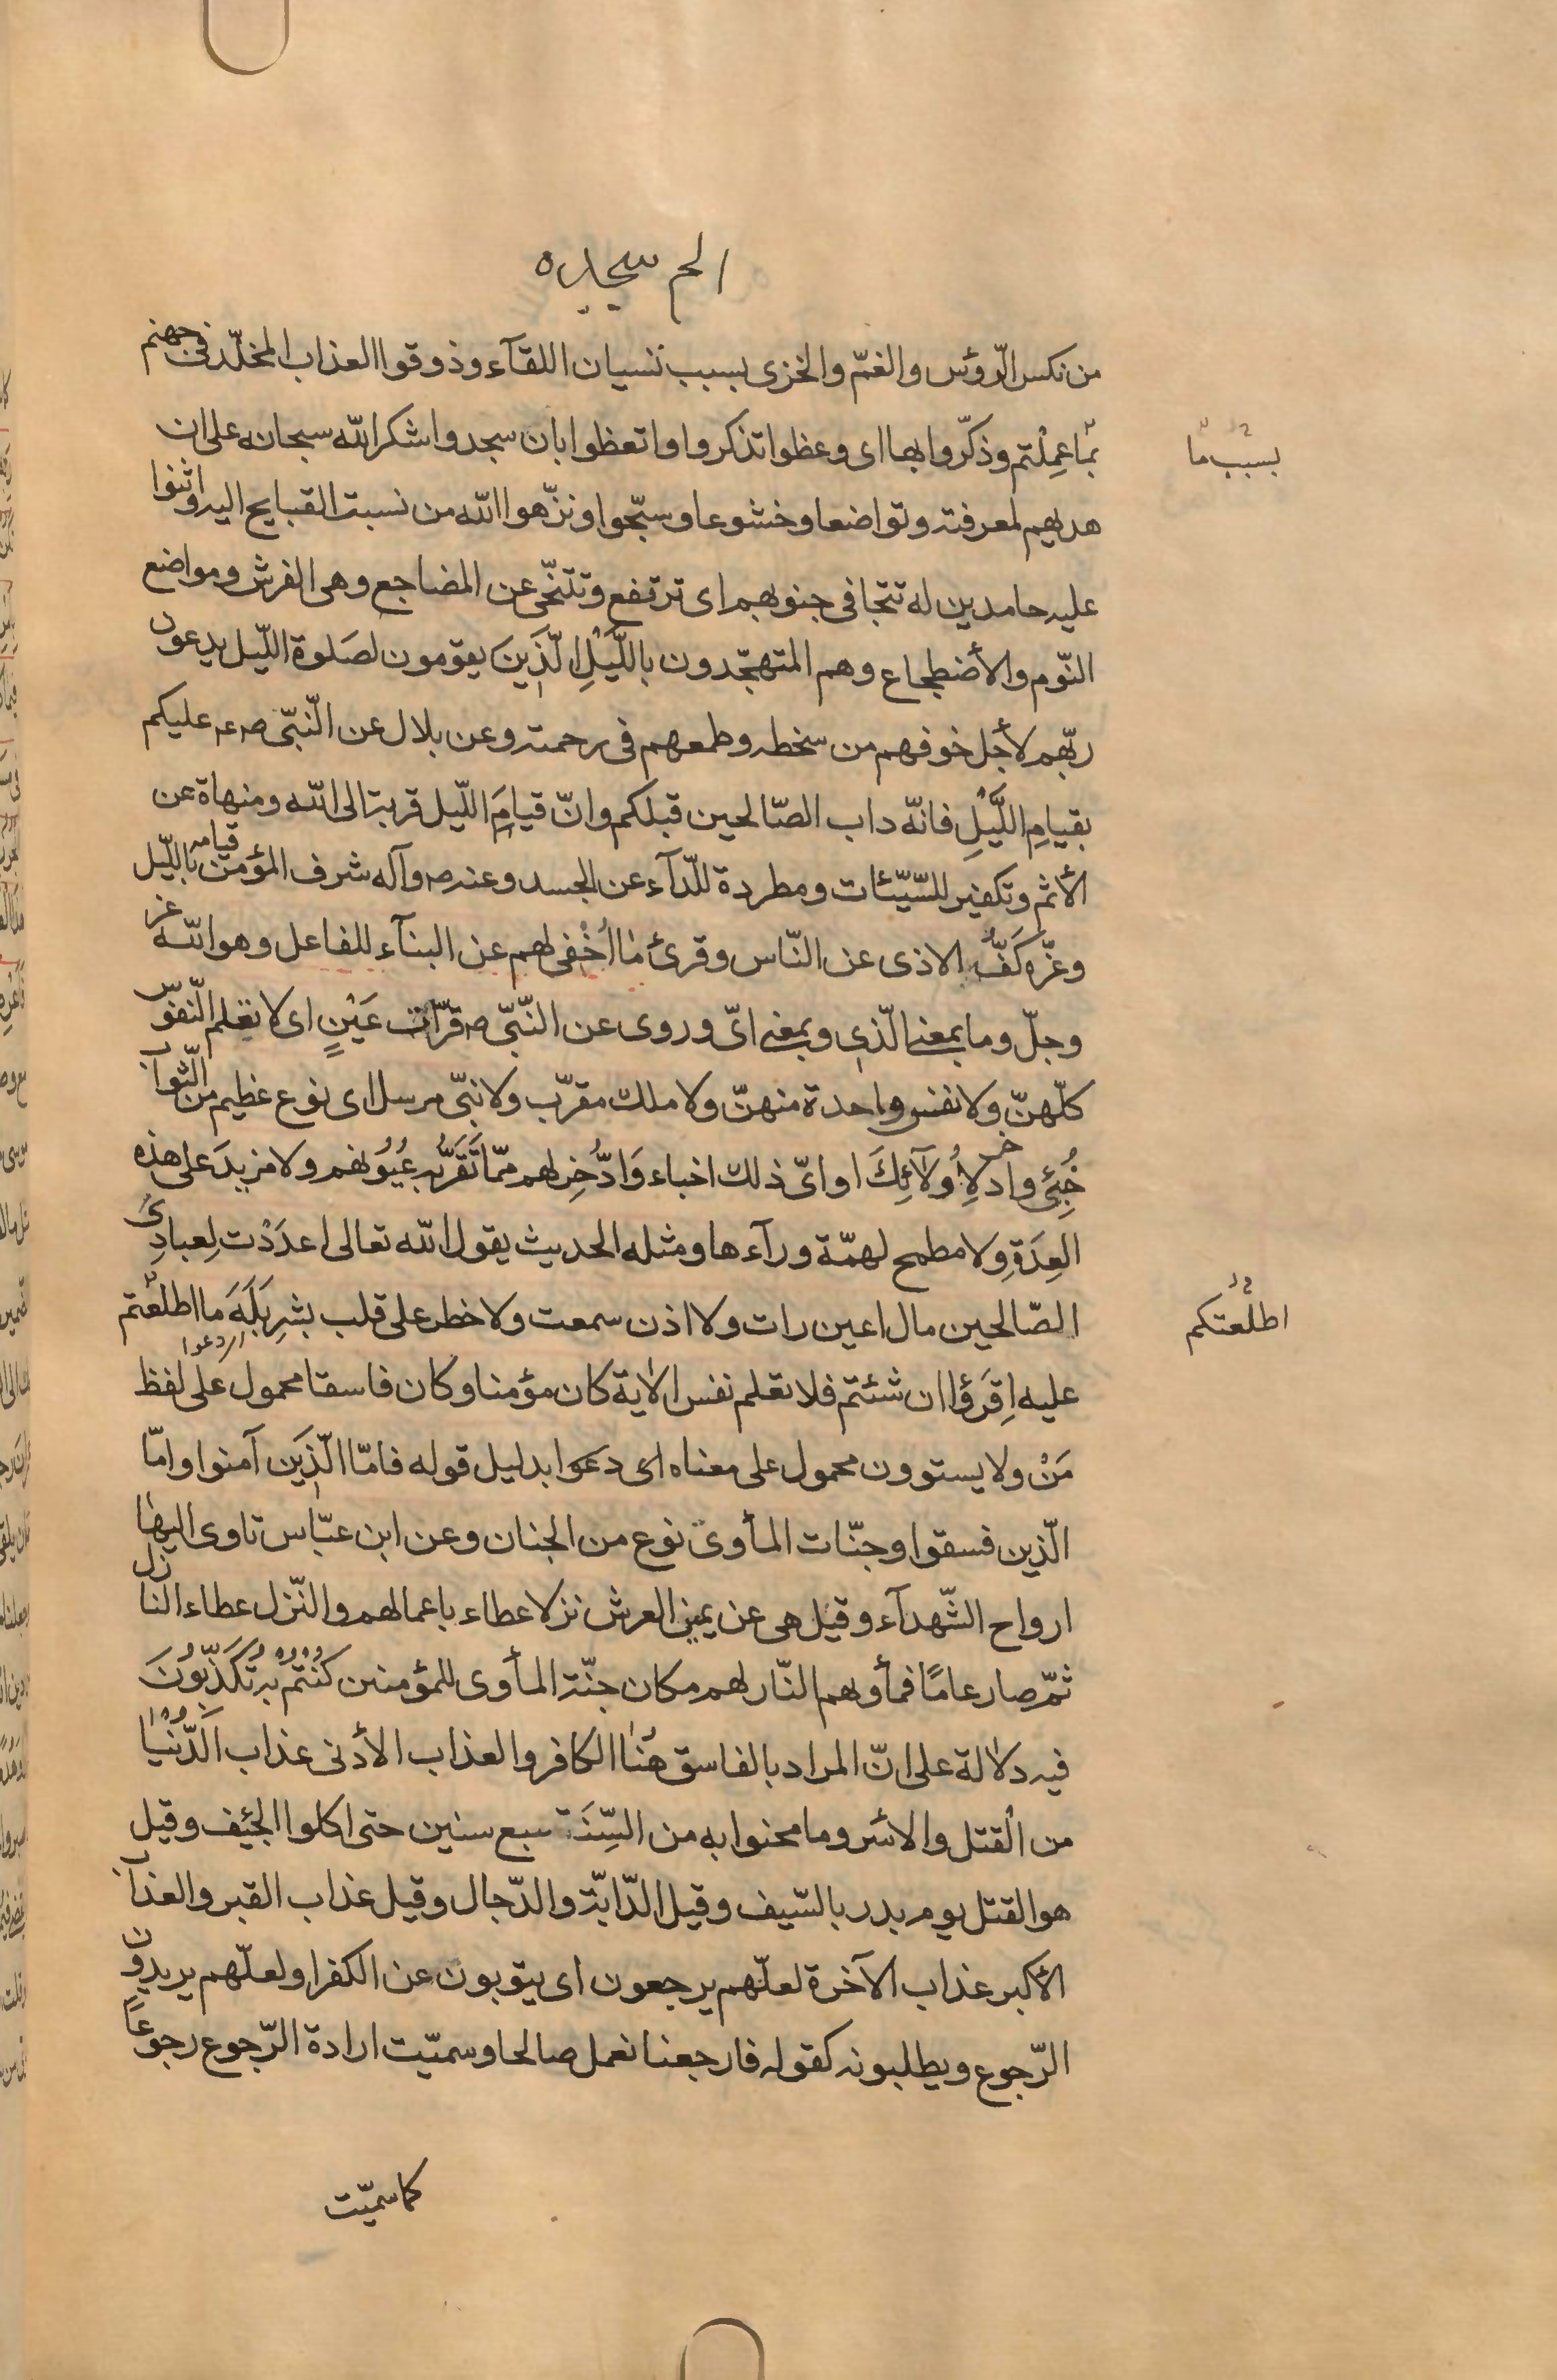 الم سجده
من نكس الرّؤس والغمّ والخزى بسبب نسيان اللقآء وذوقوا العذاب المخلّد فى جهنم
بما عِمِلْتم وذكّروا بها اى وعظوا تذكروا واتعظوا بان سجدوا شكرا لله سبحانه على ان
بسبب ما
هديهم لمعرفته وتواضعا وخشوعا وسبّحوا ونزّهوا الله من نسبت القبايح اليه واثنوا
عليه حامدين له تتجافى جنوبهم اى ترتفع وتتنحّى عن المضاجع وهى الفرش ومواضع
النّوم والأضطجاع وهم المتهجّدون باللَّيْلِ الّذَينَ يقومون لصَلوة اللّيل يدعون
ربّهم لأجل خوفهم من سخطه وطمعهم فى رحمته وعن بلال عن النّبّى ص ع عليكم
بقيامِ اللَّيْلِ فانّه داب الصّالحين قبلكم وانّ قيامَ اللّيل قربة الى الله ومنهاة عن
الأثم وتكفير للسّيّئات ومطردة للدّآء عن الجسد وعنه ص وآله شرف المؤمن قيامه باللّيل
وعزّه كَفُّ الاذى عن الناس وقرئ ما اُخْفى لهم عن البنآء للفاعل وهو الله عز
وجلّ وما بمعنى الّذى وبمعنى اىّ وروى عن النّبّى ص قرّات عَيْنٍ اى لا تعلم النّفوس
كلّهنّ ولا نفس واحدة منهنّ ولا ملك مقرّب ولا نبّى مرسل اى نوع عظيم من الثّواب
خُبِّئَ وادخر لِاُولآئِكَ او اىّ ذلك اخباء وَادُّخِر لهم ممّا تَقَرُّ به عُيُونهم ولا مزيدَ على هذه
العِدَةِ ولا مطمح لهمّة ورآءها ومثله الحديث يقول الله تعالى اعدَدْت لِعبادِىَ
الصّالحين مال اعين رات ولا اذن سمعت ولا خطر على قلب بشرٍ بَلَهَ ما اطلعْتم
اطلعْتكم
عليه اِقرَؤا ان شئتم فلا تعلم نفس الاية كان مؤمنا وكان فاسقا محمول على لفظ
مَنْ ولا يستوون محمول على معناه اى دعوا بدليل قوله فامّا الّذين آمنوا وامّا
الّذين فسقوا وجنّات المأوى نوع من الجنان وعن ابن عبّاس تاوى اليها
ارواح الشّهدآء وقيل هى عن يمين العرش نزلا عطاء باعمالهم والنّزل عطاء النازل
ثمّ صار عامًا فمأويهم النّار لهم مكان جنّة المأوى للمؤمنين كُنْتُمْ بِهِ تُكَذِّبُونَ
فيه دلالة على انّ المراد بالفاسق هُنا الكافر والعذاب الأدنى عذاب الدُّنْيا
من القتل والاسر وما محنوا به من السِّنَة سبع سنين حتى اكلوا الجئيف وقيل
هو القتل يوم بدر بالسّيف وقيل الدّابّة والدّجال وقيل عذاب القبر والعذاب
الأكبر عذاب الآخرة لعلّهم يرجعون اى يتوبون عن الكفر او لعلّهم يريدون
الرّجوع ويطلبونه كقوله فارجعنا نعمل صالحا وسميّت ارادة الرّجوع رجوعاً
كما سميّت